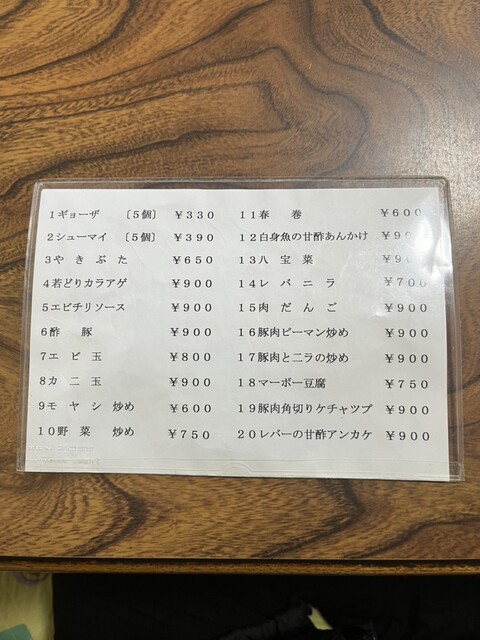 1ギョーザ 〔5個〕 ￥330
2シューマイ 〔5個〕 ￥390
3やきぶた ￥650
4若どりカラアゲ ￥900
5エビチリソース ￥900
6酢豚 ￥900
7エビ玉 ￥800
8カニ玉 ￥900
9モヤシ炒め ￥600
10野菜炒め ￥750
11春巻 ￥600
12白身魚の甘酢あんかけ ￥90
13八宝菜 ￥9
14レバニラ ￥700
15肉だんご ￥900
16豚肉ピーマン炒め ￥900
17豚肉とニラの炒め ￥900
18マーボー豆腐 ￥750
19豚肉角切りケチャップ ￥900
20レバーの甘酢アンカケ ￥900